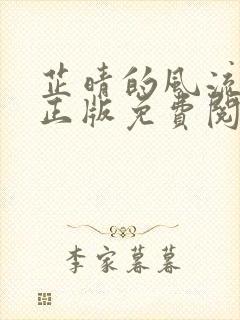 芷晴的风流
正版免费阅
李家暮暮